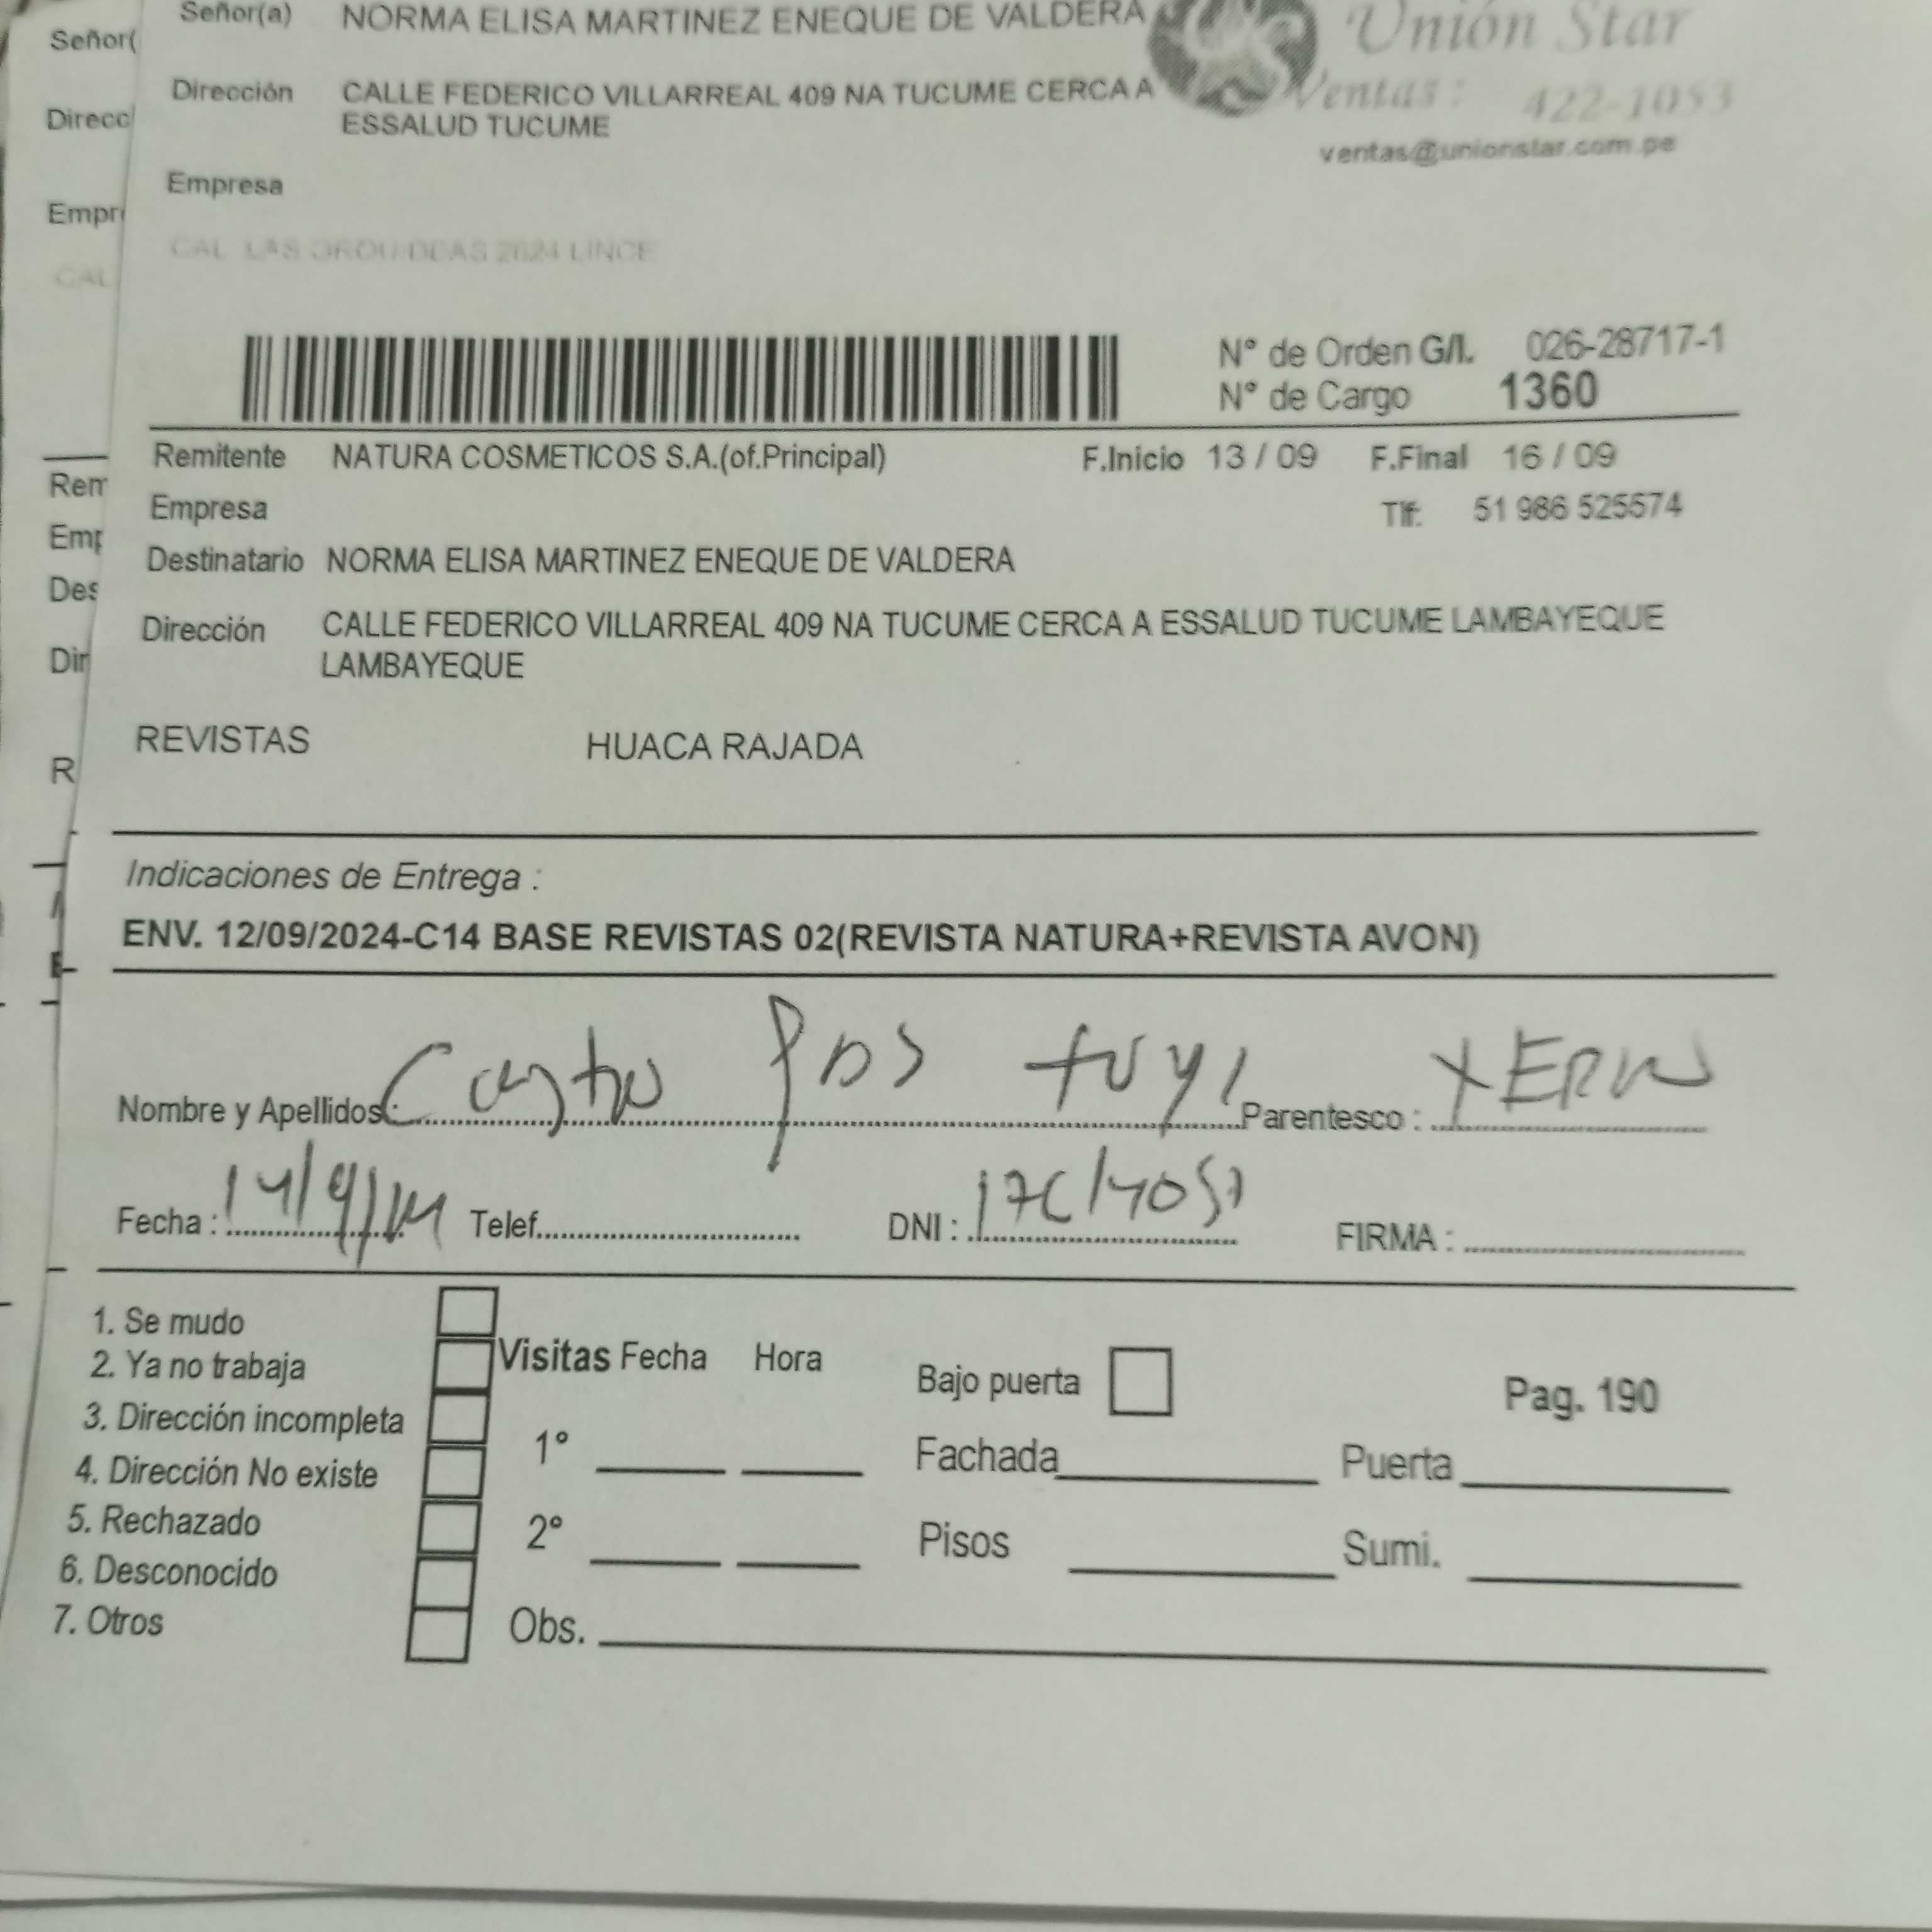 Señor(a) NORMA ELISA MARTINEZ ENEQUE DE VALDERA
Unión Star
Señor(
Dirección CALLE FEDERICO VILLARREAL 409 NA TUCUME CERCA A
ESSALUD TUCUME
Ventas: 422-1053
ventas@unionstar.com.pe
Direcc
Empresa
Empr
CAL LAS ORQUIDEAS 2624 LINCE
CAL
N° de Orden G/I. 026-28717-1
N° de Cargo 1360
Remitente NATURA COSMETICOS S.A.(of.Principal) F.Inicio 13 / 09 F.Final 16 / 09
Rem
Empresa Tlf: 51 986 525574
Emp
Destinatario NORMA ELISA MARTINEZ ENEQUE DE VALDERA
Des
Dirección CALLE FEDERICO VILLARREAL 409 NA TUCUME CERCA A ESSALUD TUCUME LAMBAYEQUE
LAMBAYEQUE
Dir
REVISTAS HUACA RAJADA
R
Indicaciones de Entrega :
ENV. 12/09/2024-C14 BASE REVISTAS 02(REVISTA NATURA+REVISTA AVON)
Nombre y Apellidos: Castro Parentesco : YERNO
Fecha : 14/9/ Telef. DNI : FIRMA :
1. Se mudo
2. Ya no trabaja
3. Dirección incompleta
4. Dirección No existe
5. Rechazado
6. Desconocido
7. Otros
Visitas Fecha Hora
1°
2°
Obs.
Bajo puerta Pag. 190
Fachada Puerta
Pisos Sumi.